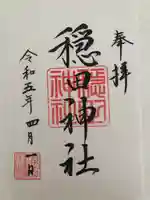 奉拝
穏田神社
令和五年四月